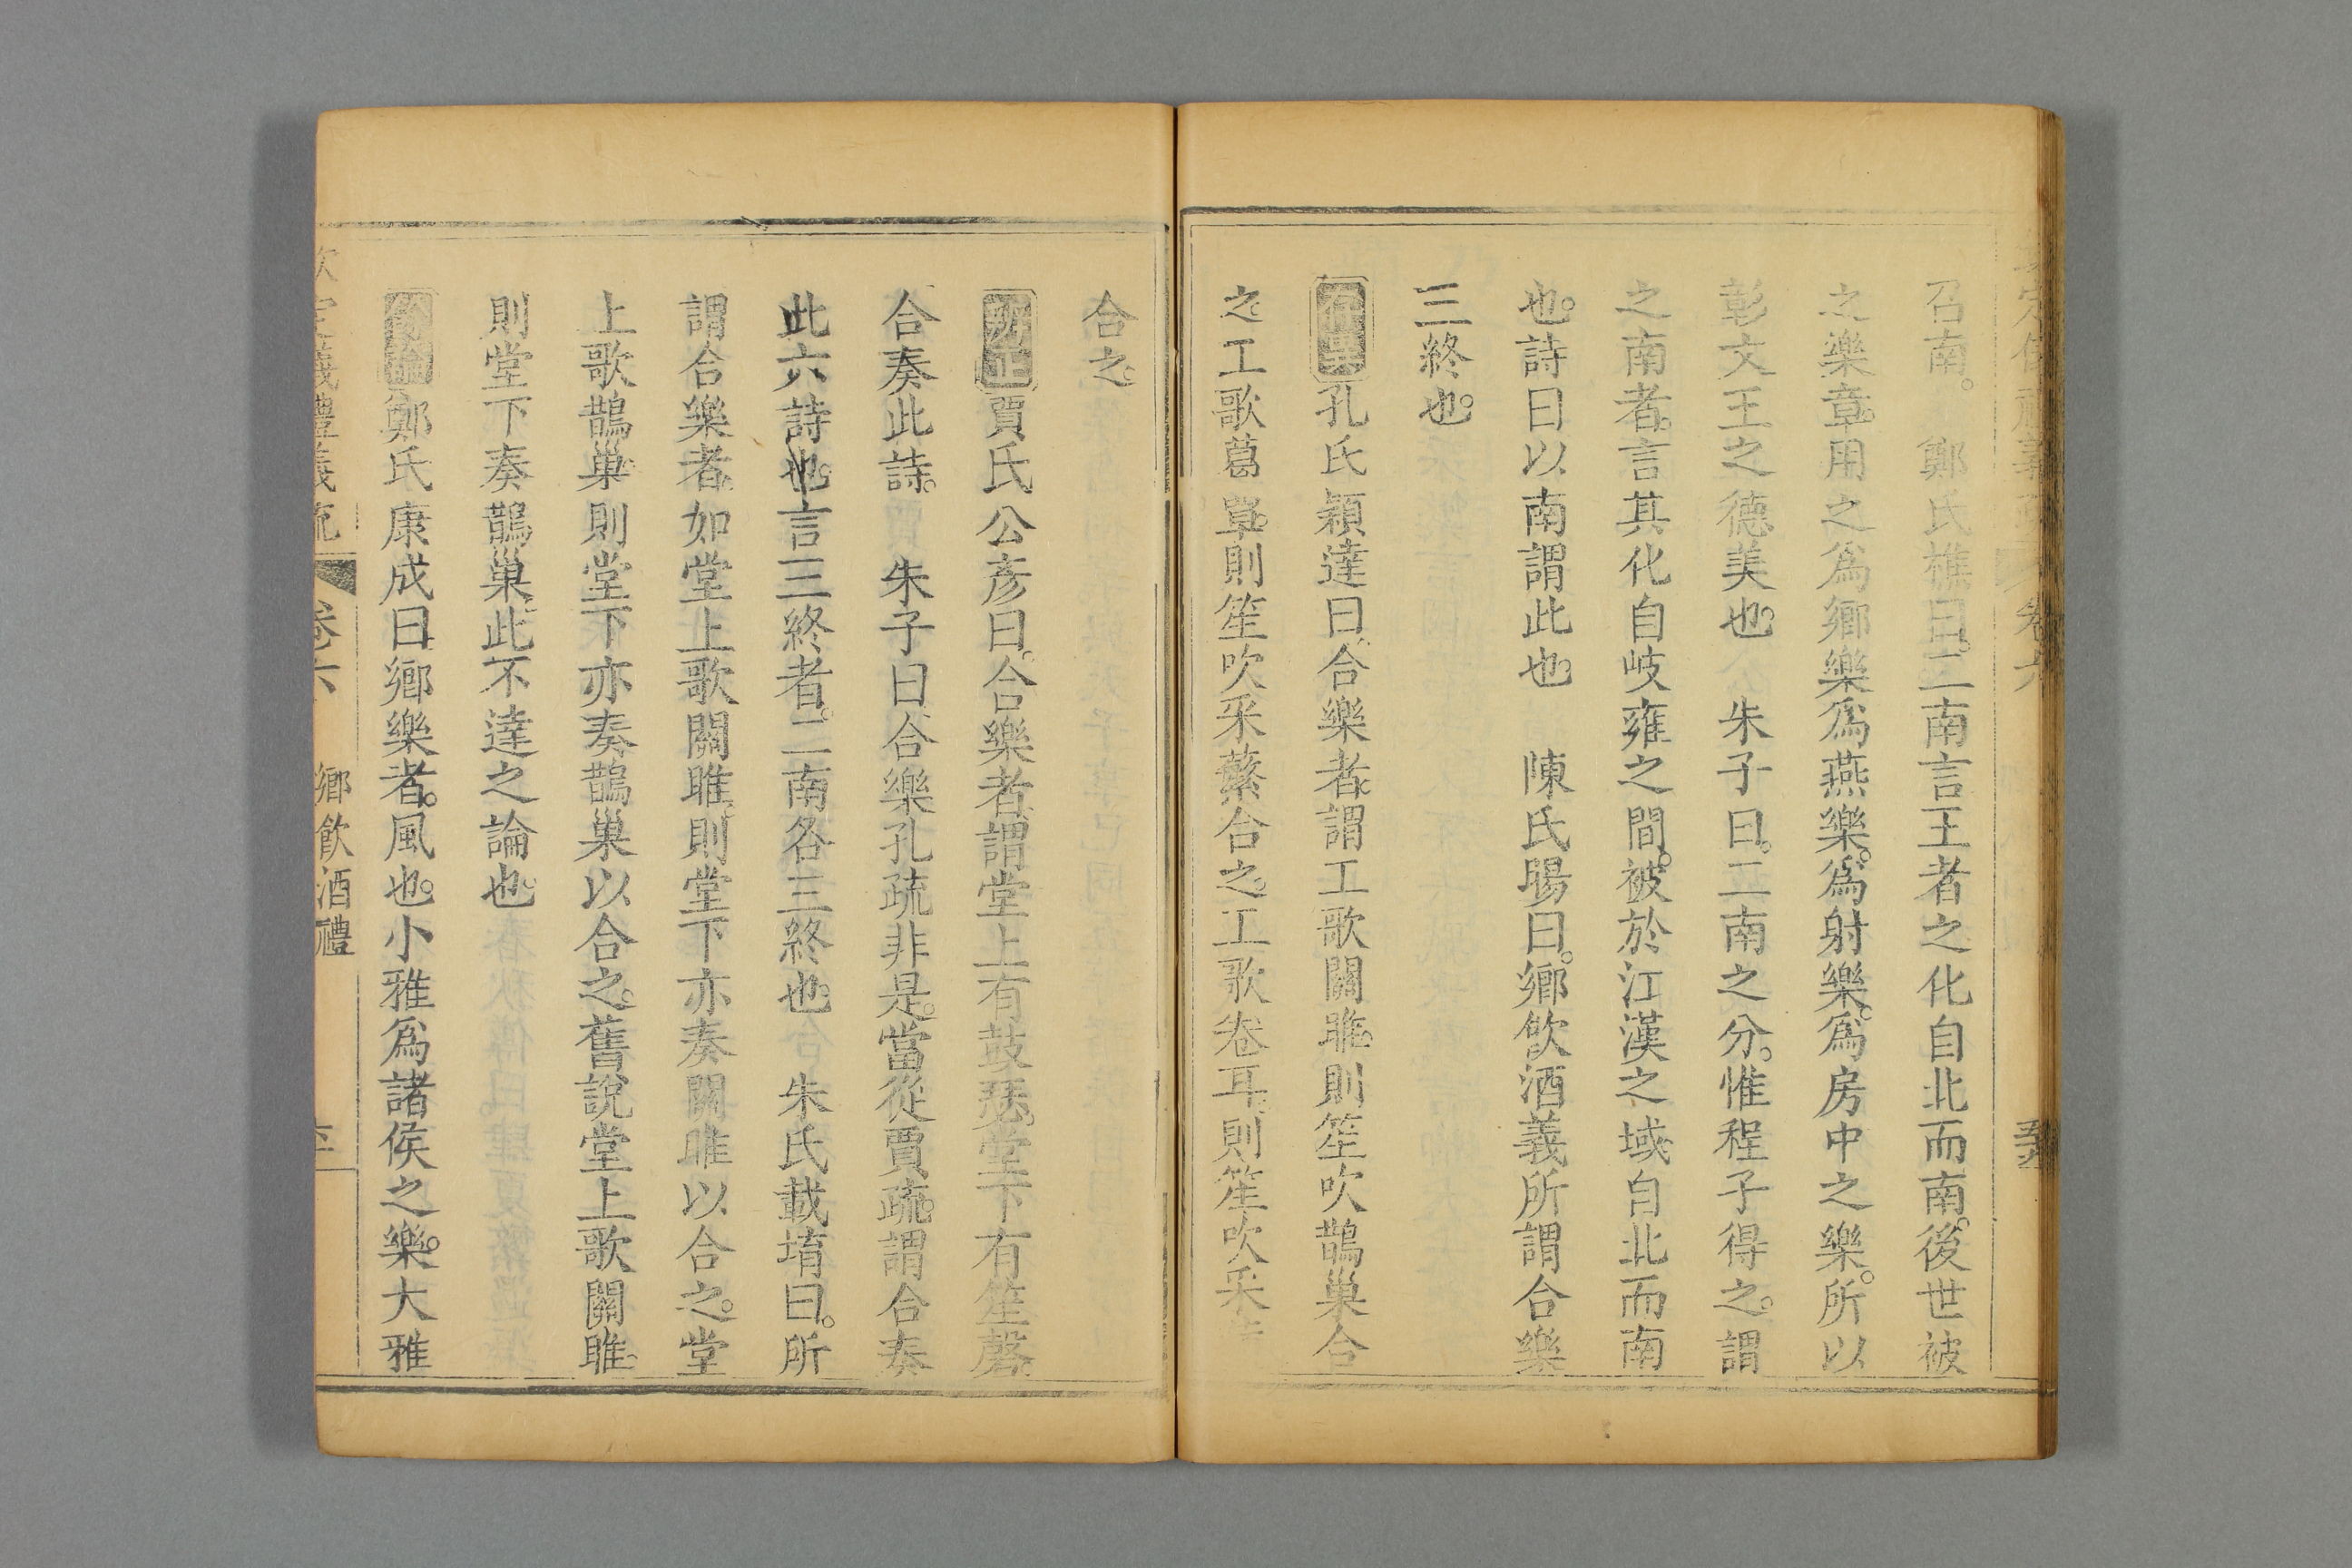 召南。　鄭氏樵曰。二南言王者之化自北而南。後世被
之樂章。用之爲鄉樂爲燕樂。爲射樂。爲房中之樂。所以
彰文王之德美也。　朱子曰。二南之分。惟程子得之。謂
之南者。言其化自岐雍之間。被於江漢之域。自北而南
也。詩曰以南謂此也。　陳氏暘曰。鄉飲酒義所謂合樂
三終也。
存異孔氏穎達曰。合樂者。謂工歌關雎。則笙吹鵲巢合
之。工歌葛覃。則笙吹采蘩合之。工歌卷耳。則笙吹采
合之。
辨正賈氏公彥曰。合樂者。謂堂上有鼓瑟。堂下有笙磬。
合奏此詩。　朱子曰。合樂孔疏非是。當從賈疏。謂合奏
此六詩也。言三終者。二南各三終也。　朱氏載堉曰。所
謂合樂者。如堂上歌關雎。則堂下亦奏關雎以合之。堂
上歌鵲巢。則堂下亦奏鵲巢以合之。舊說堂上歌關雎。
則堂下奏鵲巢。此不達之論也。
餘論鄭氏康成曰。鄉樂者。風也。小雅爲諸侯之樂。大雅
欽定儀禮義疏　卷六　鄉飲酒禮